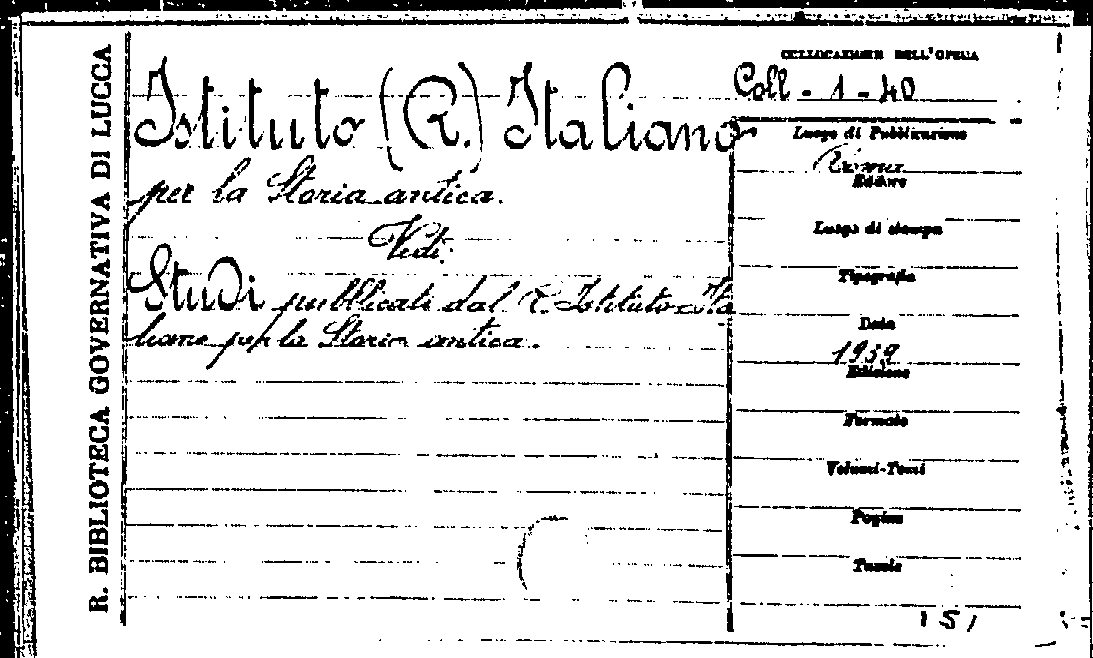 R. BIBLIOTECA GOVERNATIVA DI LUCCA
Istituto (R.) Italiano
per la Storia antica.
Vedi:
Studi pubblicati dal R. Istituto Ita
liano per la Storia antica.
COLLOCAZIONE DELL'OPERA
Coll - 1 - 40
Luogo di Pubblicazione
Roma
Editore
Luogo di stampa
Tipografia
Data
1939
Edizione
Formato
Volumi-Tomi
Pagine
Tavole
151